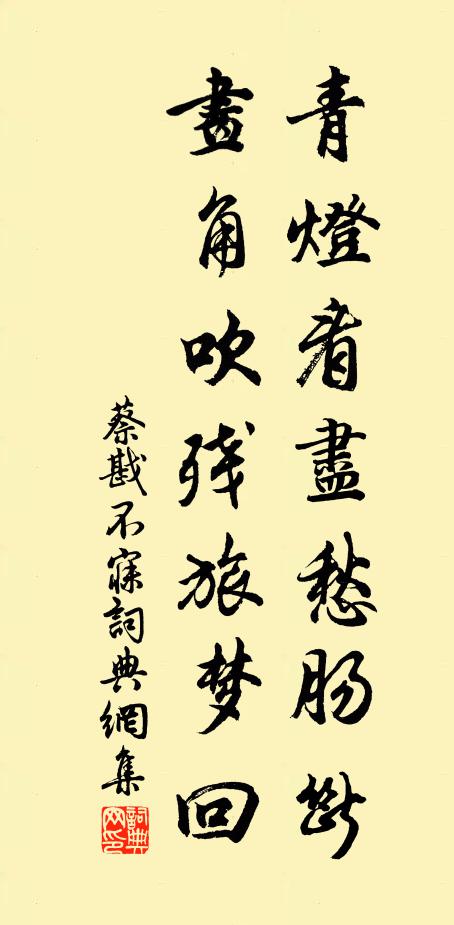 青燈看盡愁肠斷
畫角吹残旅梦回
蔡戡不寐詞典網集
詞典网印